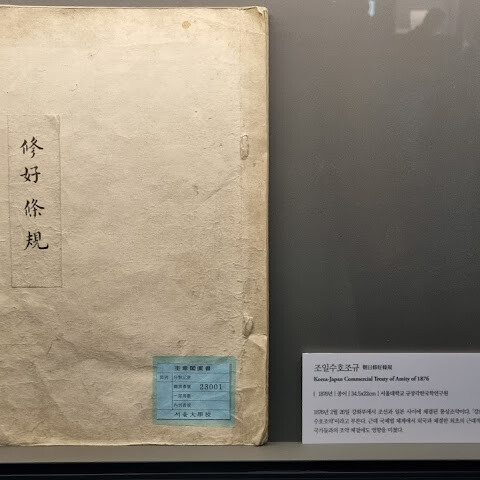 修好條規
圖書番號 23001
서울大學校
조일수호조규 朝日修好條規
Korea-Japan Commercial Treaty of Amity of 1876
1876년 | 종이 | 34.5x22cm | 서울대학교 규장각한국학연구원
1876년 2월 26일 강화부에서 조선과 일본 사이에 체결된 통상조약이다.
수호조약'이라고 부른다. 근대 국제법 체계에서 외국과 체결한 최초의 근대적
국가들과의 조약 체결에도 영향을 미쳤다.